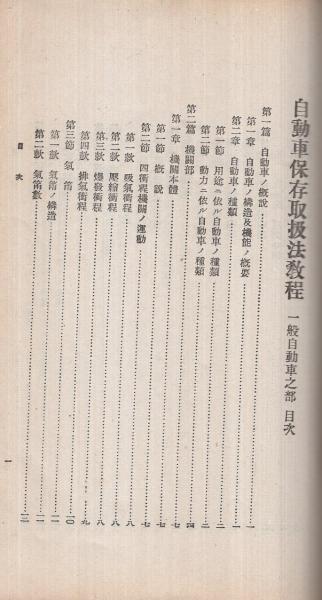 自動車保存取扱法教程 一般自動車之部 目次
第一篇 自動車ノ概説
第一章 自動車ノ構造及機能ノ概要……一
第二章 自動車ノ種類……一
第一節 用途ニ依ル自動車ノ種類……二
第二節 動力ニ依ル自動車ノ種類……二
第二篇 機關部……四
第一章 機關本體……七
第一節 概説……七
第二節 四衝程機關ノ運動……七
第一款 吸氣衝程……八
第二款 壓縮衝程……八
第三款 爆發衝程……八
第四款 排氣衝程……九
第三節 氣筩……一〇
第一款 氣筩ノ構造……一一
第二款 氣筩數……一二
目次
一